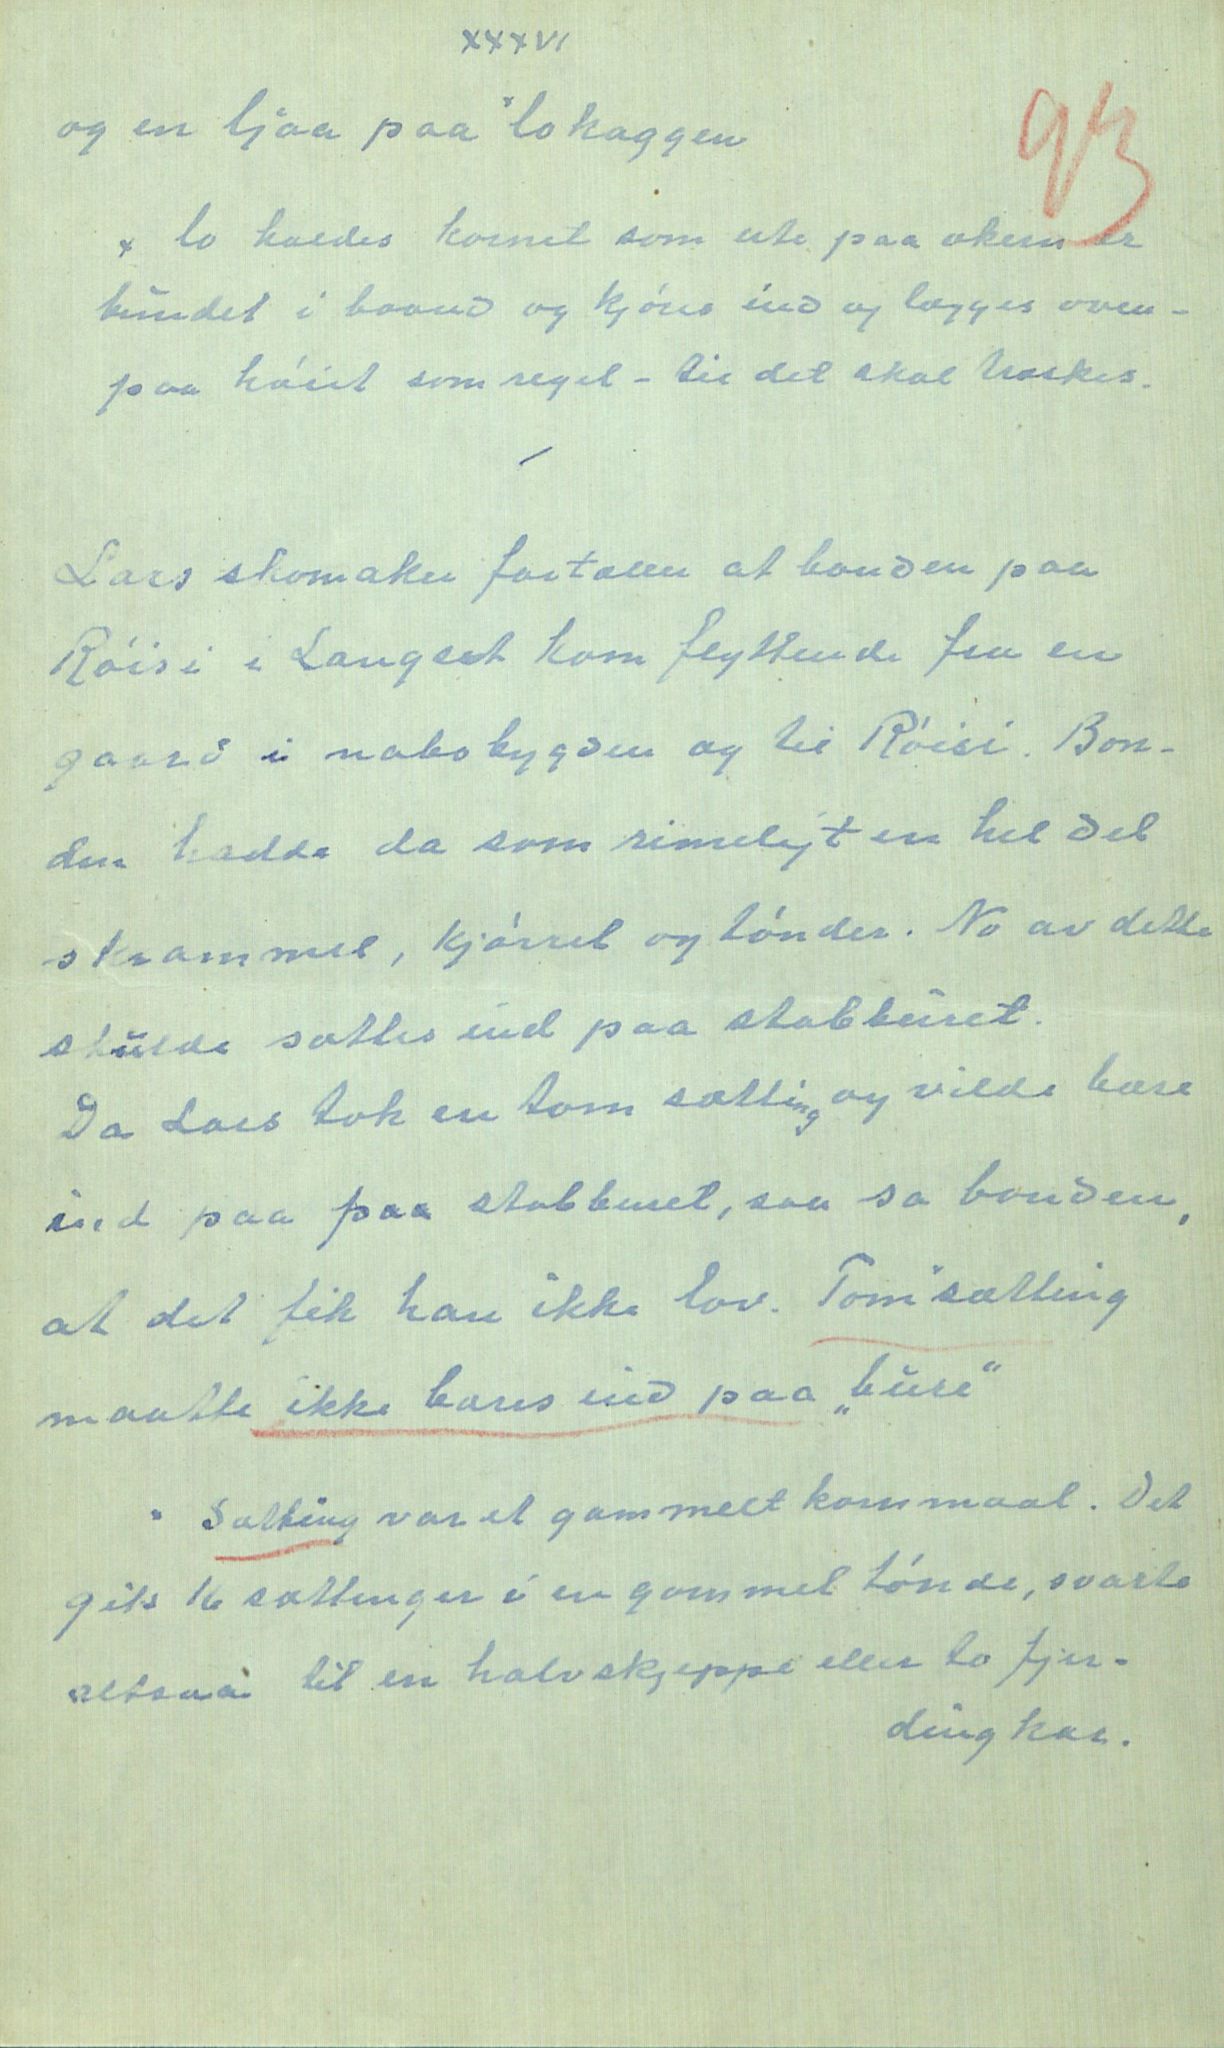 XXXVI
93
og en ljaa paa × lokaggen
× lo kaldes kornet som ute paa akern er
bundet i baand og kjøres ind og lægges oven-
paa høiet som regel - til det skal træskes.
Lars skomaker fortæller at bonden paa
Røisi i Langset kom flyttende fra en
gaard i nabobygden og til Røisi. Bon-
den hadde da som rimeligt en hel del
skrammel, kjørrel og tønder. No av dette
skulde sættes ind paa stabburet.
Da Lars tok en tom sætting og vilde bære
ind paa paa stabburet, saa sa bonden,
at det fik han ikke lov. Tom × sætting
maatte ikke bæres ind paa „bure“
× Sætting var et gammelt kornmaal. Det
gik 16 sættinger i en gammel tønde, svarte
altsaa til en halvskjeppe eller to fjer-
dingkar.